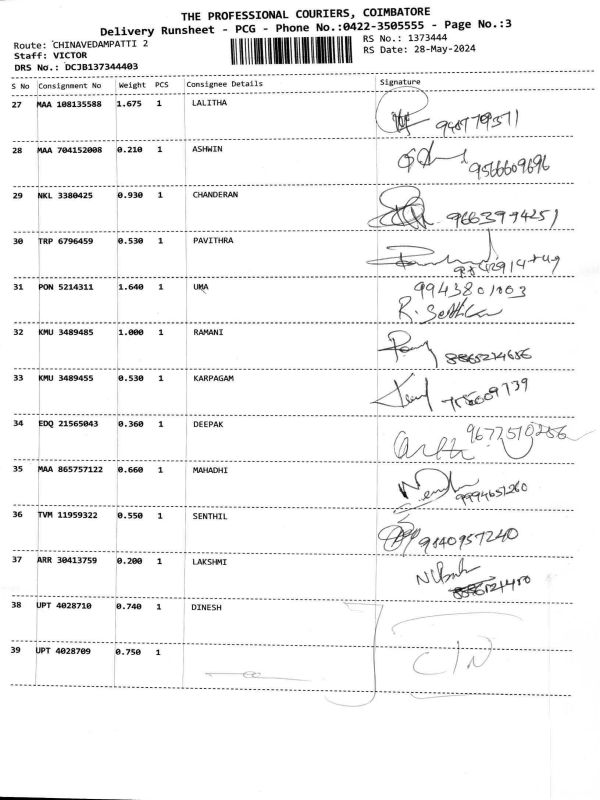 THE PROFESSIONAL COURIERS, COIMBATORE
Delivery Runsheet - PCG - Phone No.:0422-3505555 - Page No.:3
Route: CHINAVEDAMPATTI 2 RS No.: 1373444
Staff: VICTOR RS Date: 28-May-2024
DRS No.: DCJB137344403
S No Consignment No Weight PCS Consignee Details Signature
27 MAA 108135588 1.675 1 LALITHA
28 MAA 704152008 0.210 1 ASHWIN 9566609696
29 NKL 3380425 0.930 1 CHANDERAN 9663994251
30 TRP 6796459 0.530 1 PAVITHRA
31 PON 5214311 1.640 1 UMA 9943801003
R. Sethika
32 KMU 3489485 1.000 1 RAMANI
33 KMU 3489455 0.530 1 KARPAGAM
34 EDQ 21565043 0.360 1 DEEPAK 9677510256
35 MAA 865757122 0.660 1 MAHADHI 9994651260
36 TVM 11959322 0.550 1 SENTHIL 9840957240
37 ARR 30413759 0.200 1 LAKSHMI
38 UPT 4028710 0.740 1 DINESH
39 UPT 4028709 0.750 1 C/N